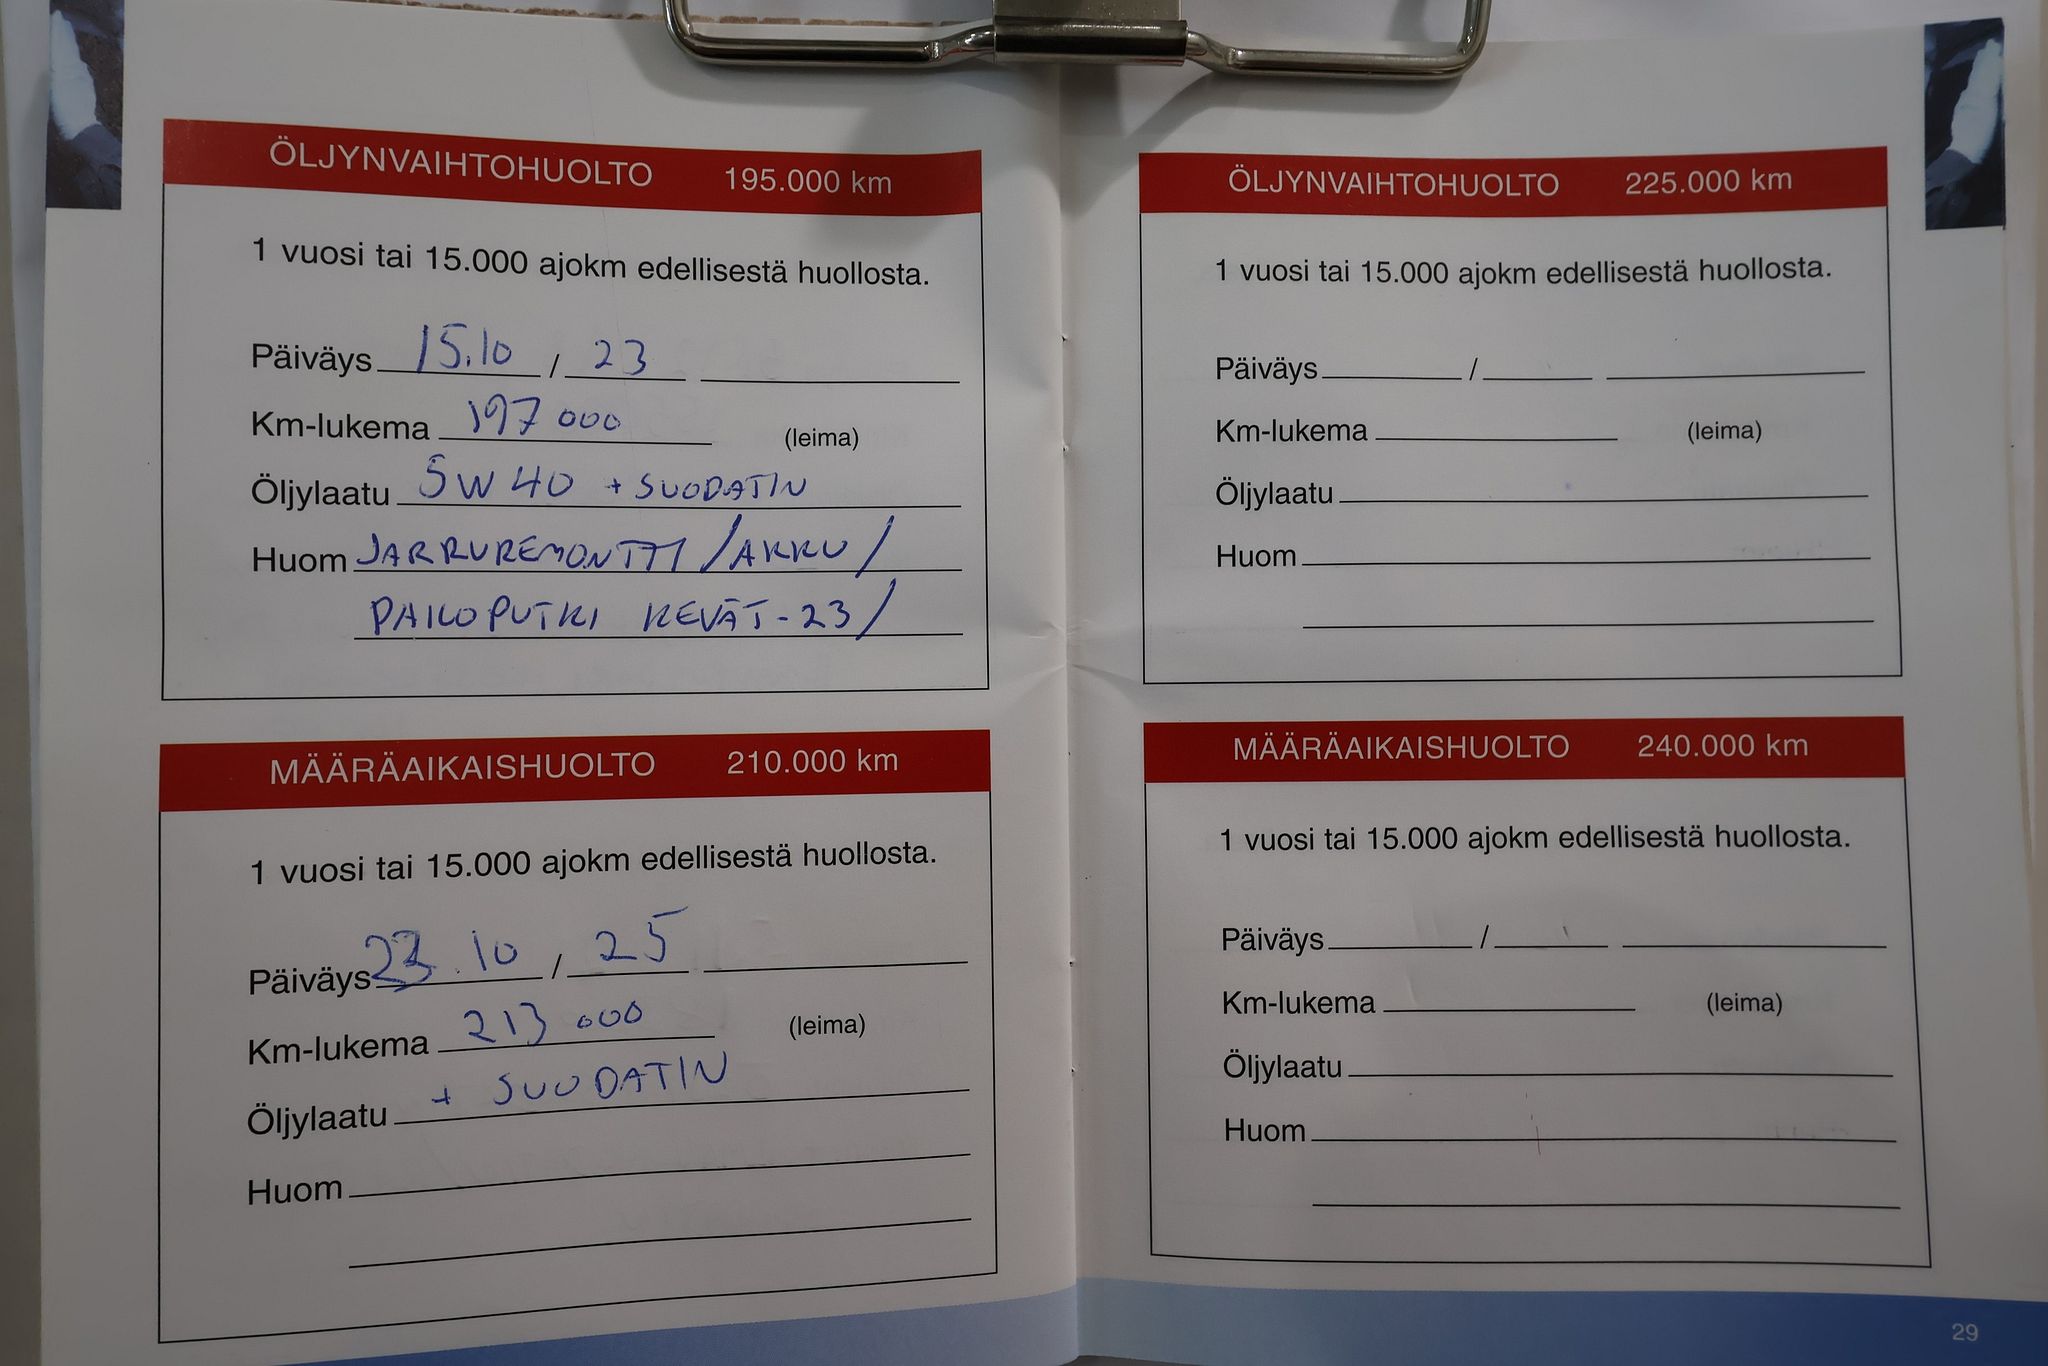 ÖLJYNVAIHTOHUOLTO 195.000 km
1 vuosi tai 15.000 ajokm edellisestä huollosta.
Päiväys 15.10 / 23
Km-lukema 197 000 (leima)
Öljylaatu 5W40 + SUODATIN
Huom JARRUREMONTTI / AKKU /
PAKOPUTKI KEVÄT-23 /
MÄÄRÄAIKAISHUOLTO 210.000 km
1 vuosi tai 15.000 ajokm edellisestä huollosta.
Päiväys 23.10 / 25
Km-lukema 213 000 (leima)
Öljylaatu + SUODATIN
Huom
ÖLJYNVAIHTOHUOLTO 225.000 km
1 vuosi tai 15.000 ajokm edellisestä huollosta.
Päiväys /
Km-lukema (leima)
Öljylaatu
Huom
MÄÄRÄAIKAISHUOLTO 240.000 km
1 vuosi tai 15.000 ajokm edellisestä huollosta.
Päiväys /
Km-lukema (leima)
Öljylaatu
Huom
29